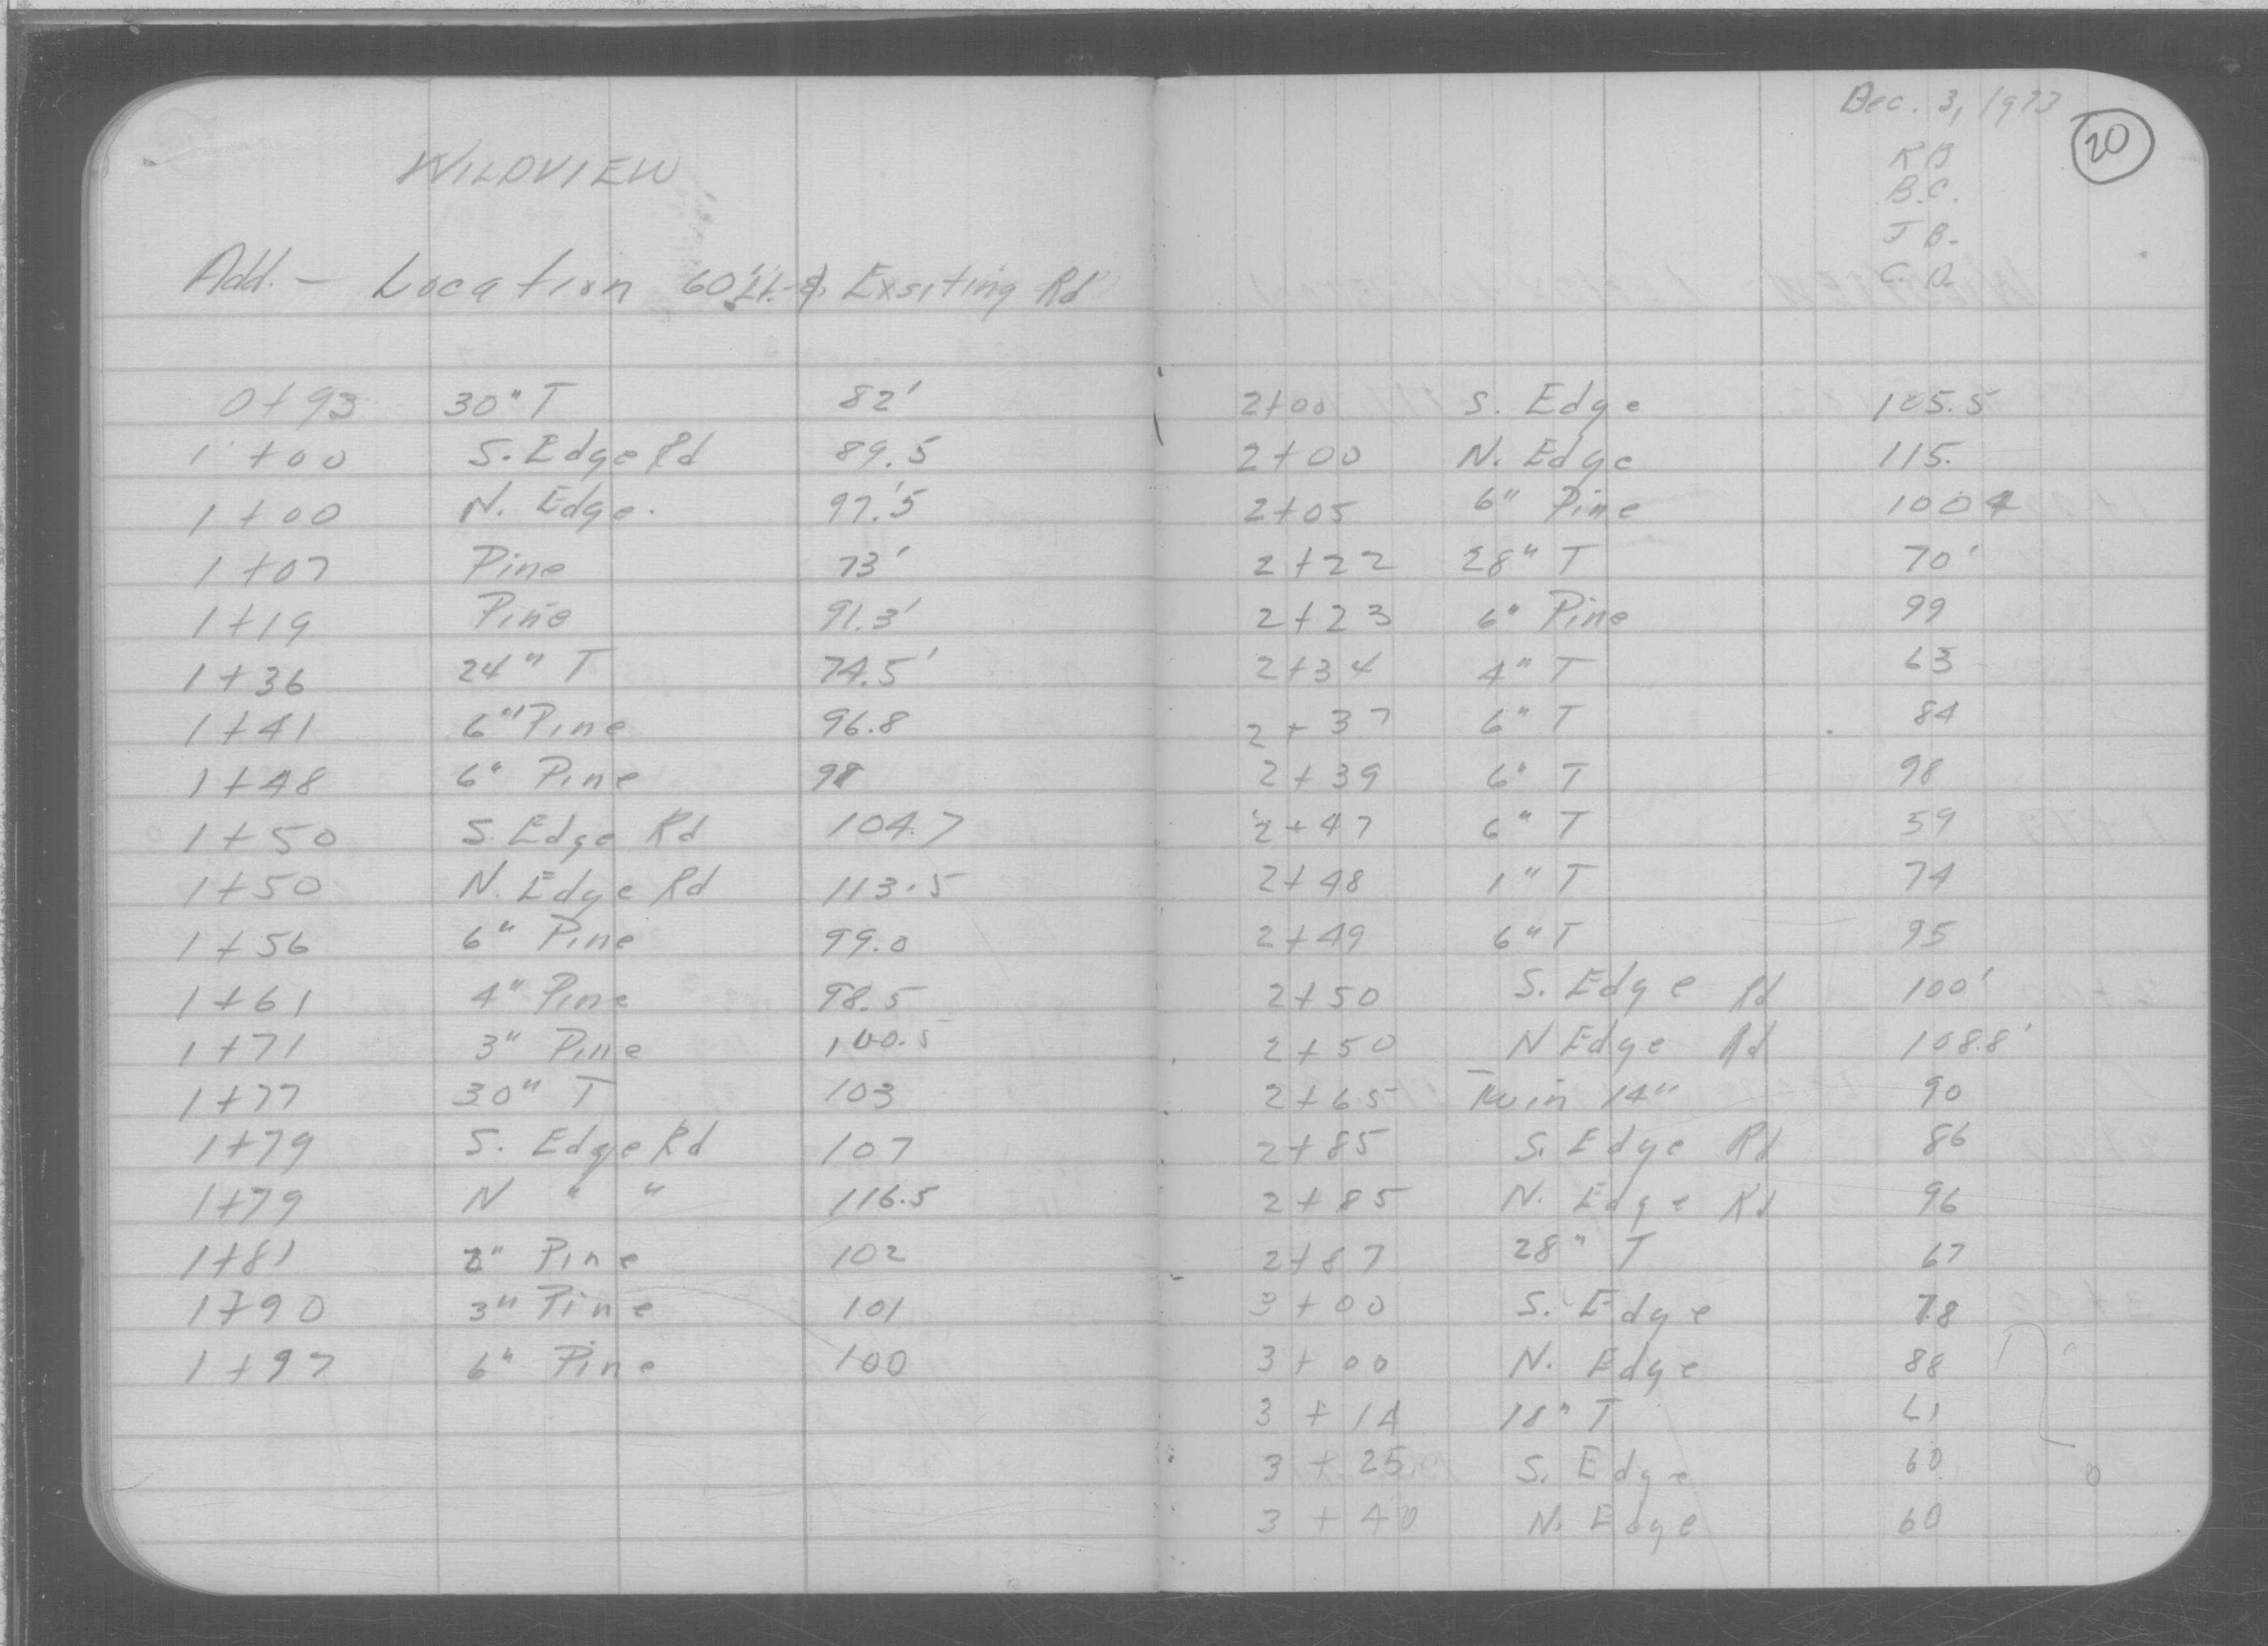 WILDVIEW
Add. — Location 60' Lt. ℄ Exsiting Rd
0+93 30" T 82'
1+00 S. Edge Rd 89.5
1+00 N. Edge. 97.'5
1+07 Pine 73'
1+19 Pine 91.3'
1+36 24" T 74.5'
1+41 6" Pine 96.8
1+48 6" Pine 98
1+50 S. Edge Rd 104.7
1+50 N. Edge Rd 113.5
1+56 6" Pine 99.0
1+61 4" Pine 98.5
1+71 3" Pine 100.5
1+77 30" T 103
1+79 S. Edge Rd 107
1+79 N " " 116.5
1+81 Pine 102
1+90 3" Pine 101
1+97 6" Pine 100
Dec. 3, 1973
20
R B
B.C.
J B.
2+00 S. Edge 105.5
2+00 N. Edge 115.
2+05 6" Pine 100.4
2+22 28" T 70'
2+23 6" Pine 99
2+34 4" T 63
2+37 6" T 84
2+39 6" T 98
2+47 6" T 59
2+48 1" T 74
2+49 6" T 95
2+50 S. Edge Rd 100'
2+50 N Edge Rd 108.8'
2+65 Twin 14" 90
2+85 S. Edge Rd 86
2+85 N. Edge Rd 96
2+87 28" T 67
3+00 S. Edge 78
3+00 N. Edge 88
3+14 18" T 61
3+25 S. Edge 60
3+40 N. Edge 60